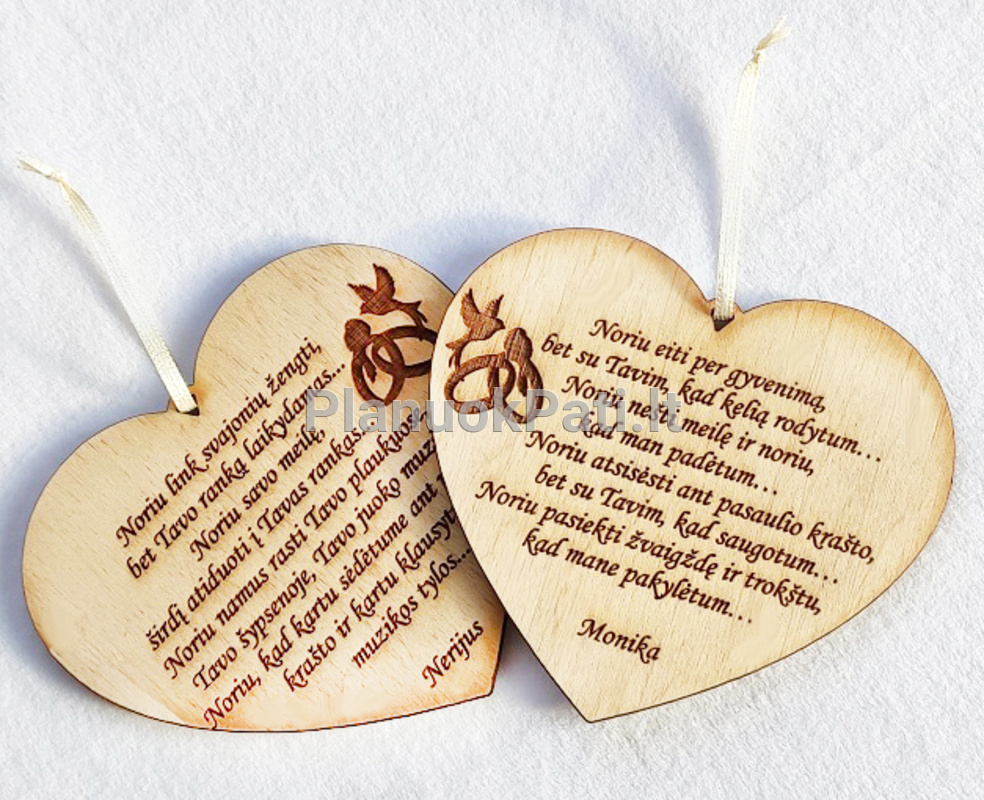 Noriu link svajonių žengti,
bet Tavo ranką laikydamas...
Noriu savo meilę,
širdį atiduoti į Tavas rankas...
Noriu namus rasti Tavo plaukuos
Tavo šypsenoje, Tavo juoko
Noriu, kad kartu sėdėtume ant
krašto ir kartu
muzikos tylos...
Nerijus
Noriu eiti per gyvenimą,
bet su Tavim, kad kelią rodytum...
Noriu nešti meilę ir noriu,
kad man padėtum...
Noriu atsisėsti ant pasaulio krašto,
bet su Tavim, kad saugotum...
Noriu pasiekti žvaigždę ir trokštu,
kad mane pakylėtum...
Monika
PlanuokPati.lt